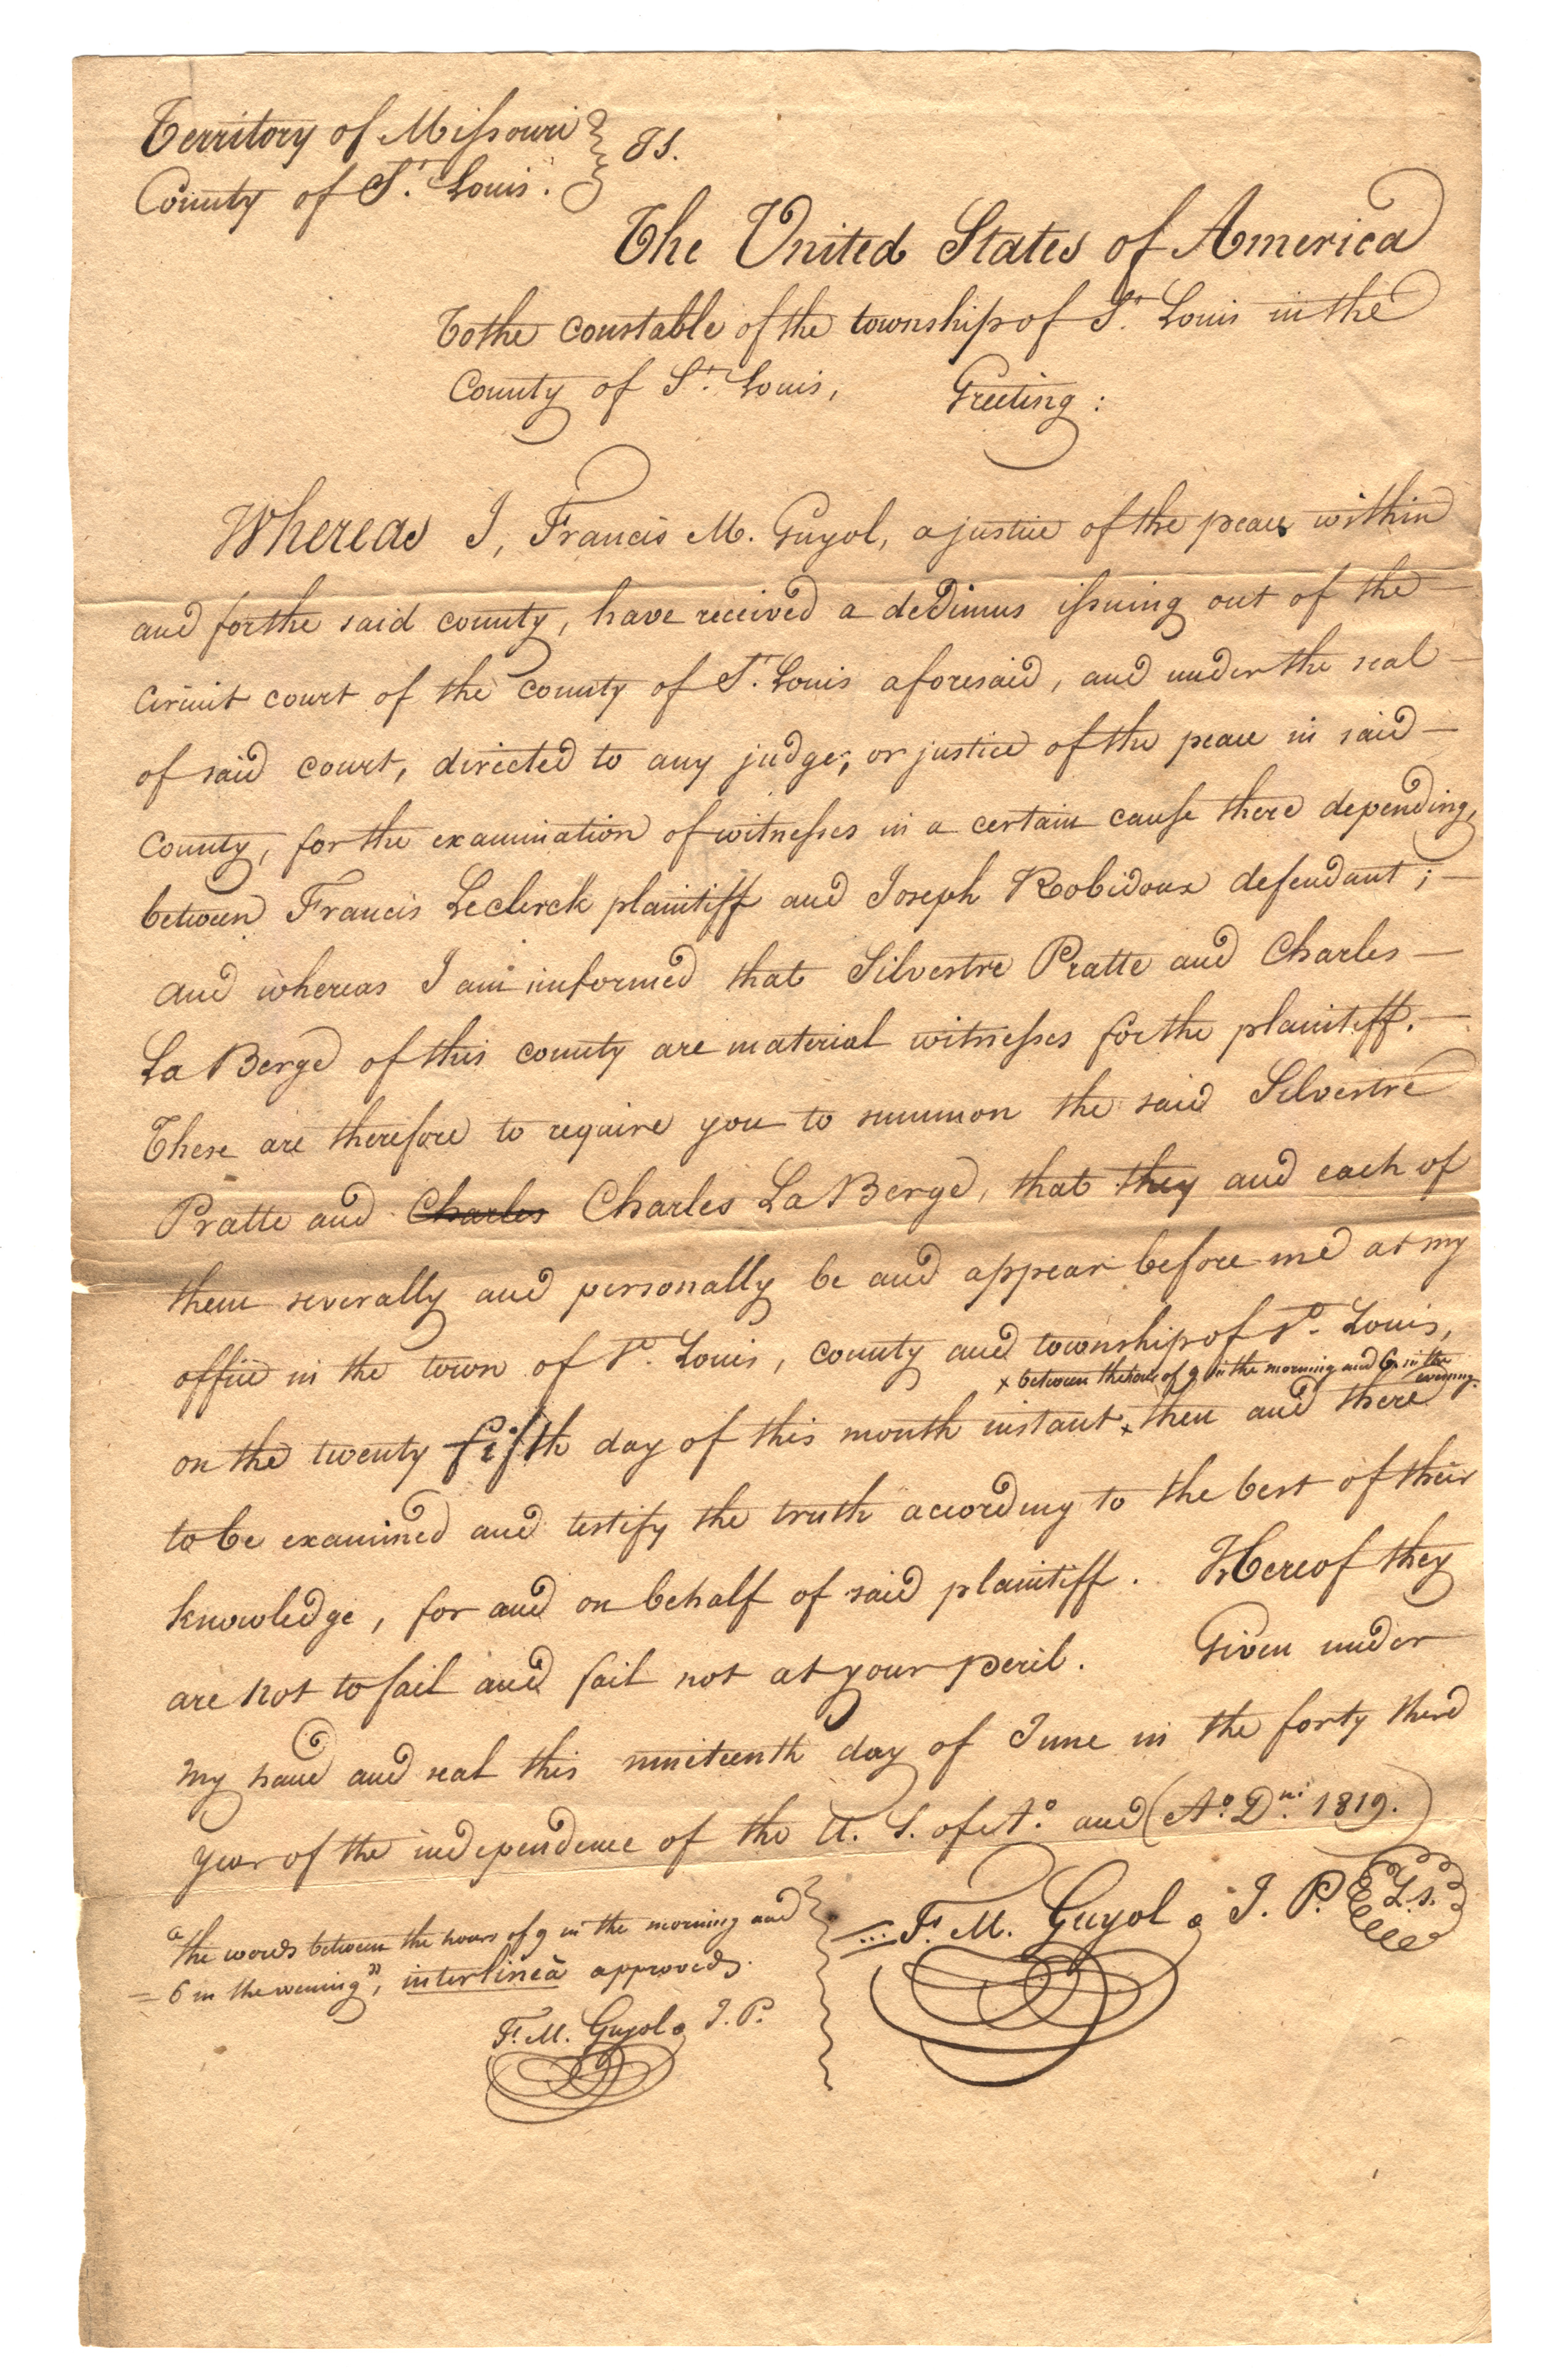 Territory of Missouri } SS.
County of St. Louis. }
The United States of America
To the constable of the township of St. Louis in the
County of St. Louis, Greeting:
Whereas I, Francis M. Guyol, a justice of the peace within
and for the said county, have received a dedimus issuing out of the —
circuit court of the county of St. Louis aforesaid, and under the seal —
of said court, directed to any judge, or justice of the peace in said —
county, for the examination of witnesses in a certain cause there depending,
between Francis Leclerck plaintiff and Joseph Robidoux defendant; —
and whereas I am informed that Silvestre Pratte and Charles —
La Berge of this county are material witnesses for the plaintiff. —
These are therefore to require you to summon the said Silvestre
Pratte and Charles Charles La Berge, that they and each of
them severally and personally be and appear before me at my
office in the town of St. Louis, county and township of St. Louis,
x between the hours of 9 in the morning and 6 in the evening.
on the twenty fifth day of this month instant x then and there
to be examined and testify the truth according to the best of their
knowledge, for and on behalf of said plaintiff. Hereof they
are not to fail and fail not at your peril. Given under
my hand and seal this nineteenth day of June in the forty third
year of the independence of the U. S. of Ao. and (Ao. Dni. 1819.)
F. M. Guyol J. P. L.s.
"the words between the hours of 9 in the morning and
= 6 in the evening", interlinea approved.
F. M. Guyol J. P.